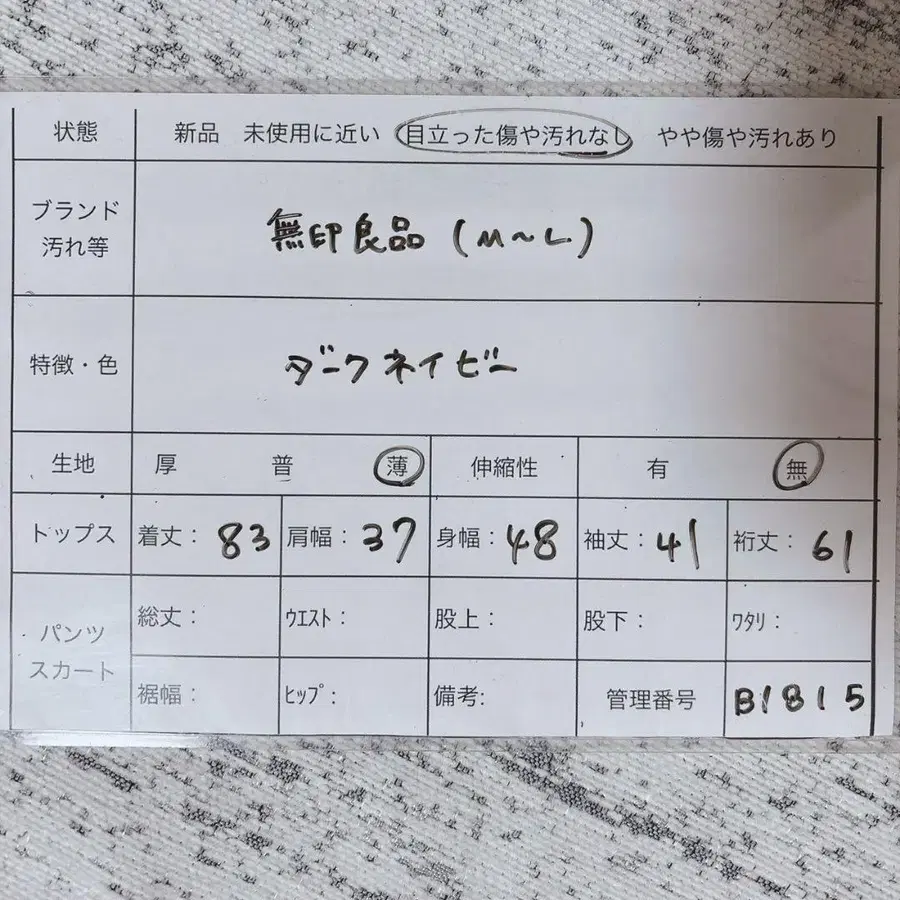 状態 新品 未使用に近い 目立った傷や汚れなし やや傷や汚れあり
ブランド
汚れ等
無印良品 (M~L)
特徴・色 ダークネイビー
生地 厚 普 薄 伸縮性 有 無
トップス 着丈: 83 肩幅: 37 身幅: 48 袖丈: 41 裄丈: 61
パンツ
スカート
総丈: ウエスト: 股上: 股下: ワタリ:
裾幅: ヒップ: 備考: 管理番号 B1815